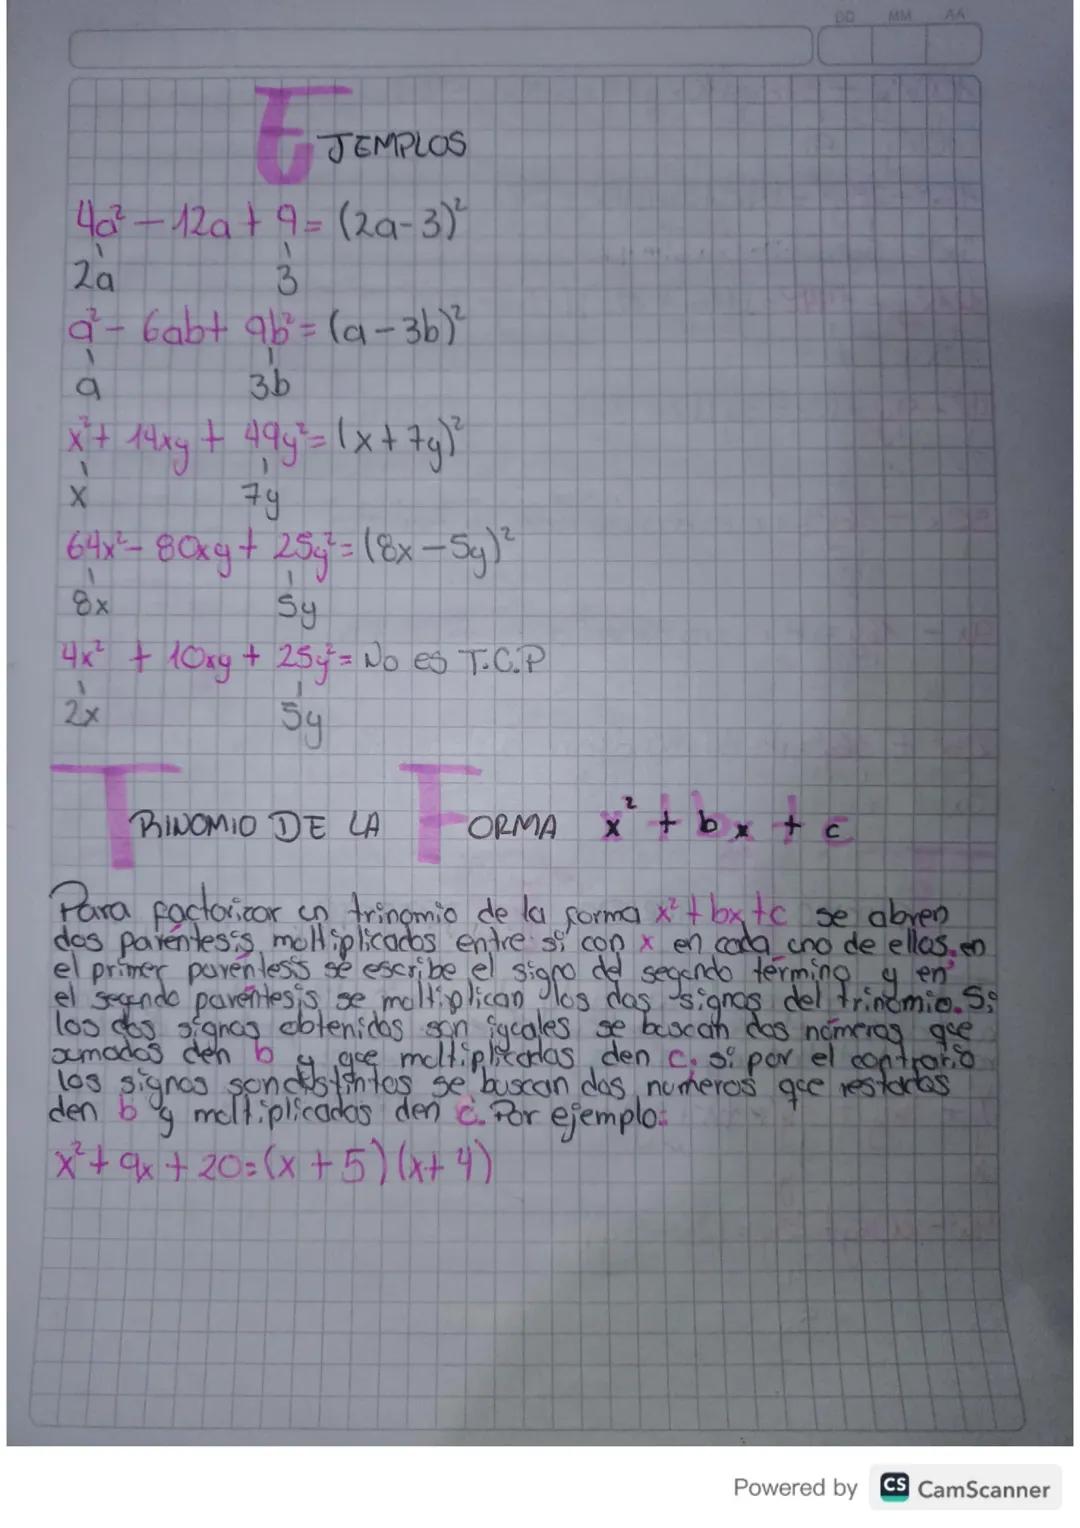 DD MM AA
EJEMPLOS
4a² - 12a + 9 = (2a-3)²
2a 3
a² - 6ab + 9b² = (a-3b)²
a 3b
x² + 14xy + 49y² = (x+7y)²
x 7y
64x² - 80xy + 25y² = (8x-5y)²
8x 5y
4x² + 10xy + 25y² = No es T.C.P
2x 5y
TRINOMIO DE LA FORMA x² + bx + c
Para factorizar un trinomio de la forma x² + bx + c se abren
dos paréntesis multiplicados entre sí con x en cada uno de ellos, en
el primer paréntesis se escribe el signo del segundo término y en
el segundo paréntesis se multiplican los dos signos del trinomio. Si
los dos signos obtenidos son iguales se buscan dos números que
sumados den b y que multiplicados den c, si por el contrario
los signos son distintos se buscan dos números que restados
den b y multiplicados den c. Por ejemplo:
x² + 9x + 20 = (x + 5) (x + 4)
Powered by CS CamScanner